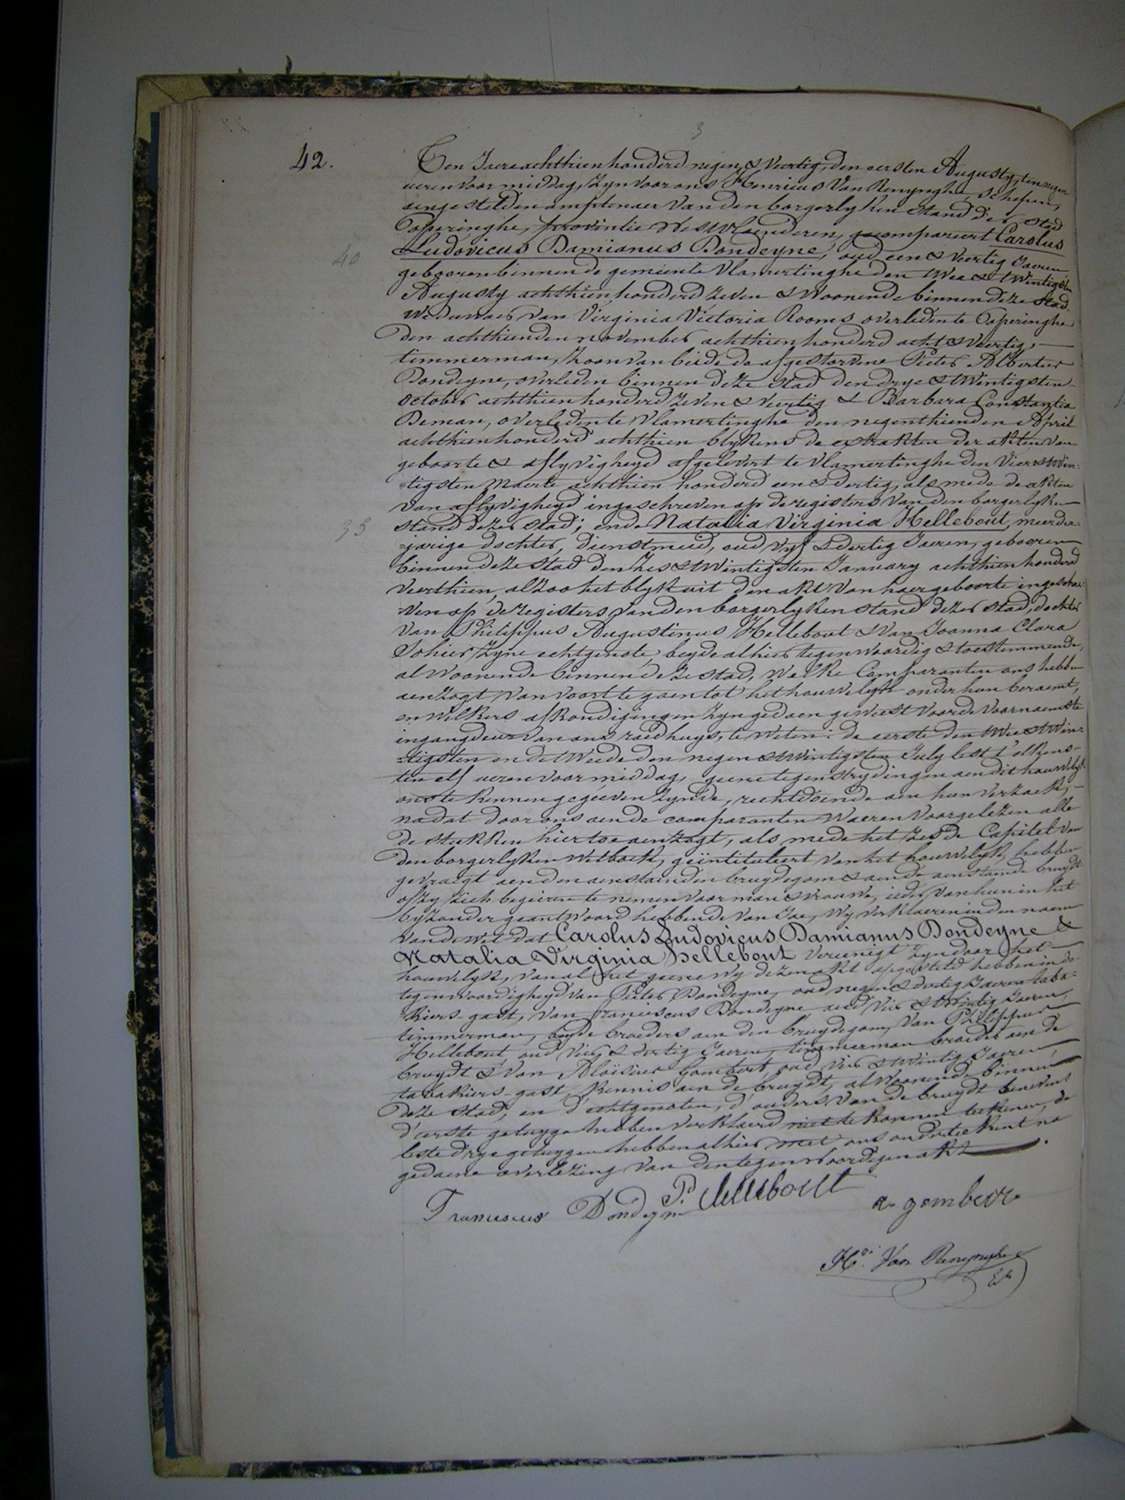 3
42.
Ten Jaere achthien honderd negen & veertig, den eersten Augusty, ten negen
ueren voormiddag, zyn voor ons Henricus Van Renynghe, Schepen,
aengestelden amptenaer van den borgerlyken stand der stad
Poperinghe, provintie Westvlaenderen, gecompareert Carolus
40
Ludovicus Damianus Dondeyne, oud een & veertig Jaeren
gebooren binnen de gemeente Vlamertinghe den twee & twintigsten
Augusty achthien honderd zeven & woonende binnen deze stad,
weduwaer van Virginia Victoria Rooms overleden te Poperinghe
den achthienden november achthien honderd acht & veertig,
timmerman, zoon van beide de afgestorvene Pieter Albertus
Dondeyne, overleden binnen deze stad den drye & twintigsten
October achthien honderd zeven & veertig & Barbara Constantia
Deman, overleden te Vlamertinghe den negenthienden April
achthien honderd achthien blykens de extrakten der akten van
geboorte & aflyvigheyd afgelevert te Vlamertinghe den vier & twin-
tigsten Maerte achthien honderd een & dertig, als mede de akten
van aflyvigheyd ingeschreven op de registers van den borgerlyken
35
stand dezer stad; ende Natalia Virginia Hellebout, meerder-
jarige dochter, dienstmeid, oud vyf & dertig Jaeren, gebooren
binnen deze stad den zes & twintigsten January achthien honderd
veerthien, alzoo het blykt uit den akt van haer geboorte ingeschre-
ven op de registers van den borgerlyken stand dezer stad, dochter
van Philippus Augustinus Hellebout & van Joanna Clara
Sohier, zyne echtgenote, beyde alhier tegenwoordig & toestemmende,
al woonende binnen deze stad, welke Comparanten ons hebben
aenzogt, van voort te gaen tot het houwelyk onder hun beraemt,
en welkers afkondigingen zyn gedaen geweest voor de voornaemste
ingangdeur van ons raedhuys, te weten: de eerste den twee & twin-
tigsten en de tweede den negen & twintigsten July lest t'elkens
ten elf ueren voormiddag, geene tegenstrydingen aen dit houwelyk
ons te kennen gegeeven zynde, rechtdoende aen hun verzoek,
nadat door ons aen de comparanten waeren voorgelezen alle
de stukken hier toe aenzogt, als mede het zesde Capitel van
den borgerlyken wetboek, geintituleert van het houwelyk, hebben
gevraegt aen den aenstaenden bruydegom & aen de aenstaende bruydt
of zy zich begeeren te nemen voor man & vrouwe, ieder van hun in het
byzonder geantwoord hebbende van Jae, wy verklaeren in den naem
van de wet dat Carolus Ludovicus Damianus Dondeyne &
Natalia Virginia Hellebout vereenigt zyn door het
houwelyk, van al het geene wy dezen akt opgesteld hebben in de
tegenwoordigheyd van Pieter Dondeyne, oud negen & dertig Jaeren taba-
kiers gast, van franciscus Dondeyne oud vier & twintig Jaeren,
timmerman, beyde broeders aen den bruydegom, van Philippus
Hellebout oud vier & dertig Jaeren, timmerman broeder aen de
bruydt & van Aloisius Gombert oud vier & twintig Jaeren,
tabakiers gast, kennis aen de bruydt, al woonende binnen
deze stad, en d'echtgenoten, d'ouders van de bruydt benevens
d'eerste getuyge hebben verklaerd niet te konnen teekenen, de
leste drye getuygen hebben alhier met ons onderteekent na
gedaene overlezing van den tegenwoordigen akt.
Franciscus Dondeyne Pd Hellebout a gombert
Hri Van Renynghe